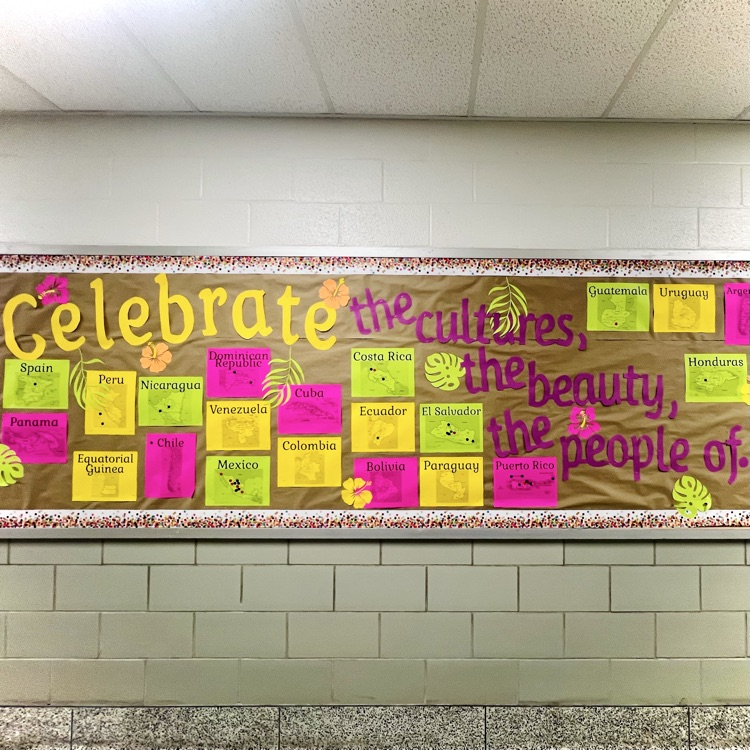 Celebrate
the cultures,
the beauty,
the people of...
Spain
Panama
Peru
Equatorial
Guinea
Nicaragua
Chile
Dominican
Republic
Venezuela
Mexico
Cuba
Colombia
Costa Rica
Ecuador
Bolivia
El Salvador
Paraguay
Puerto Rico
Guatemala
Uruguay
Honduras